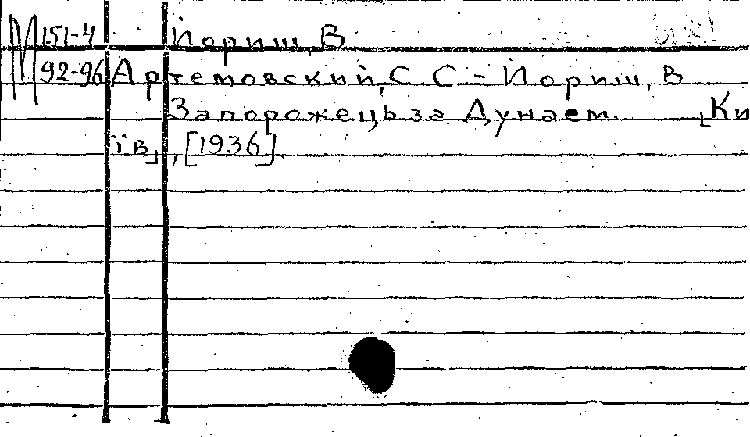 М 151-4 Йориш, В
92-96 Артемовский, С С - Йориш, В
Запорожець за Дунаем. [Ки
ïв], [1936].